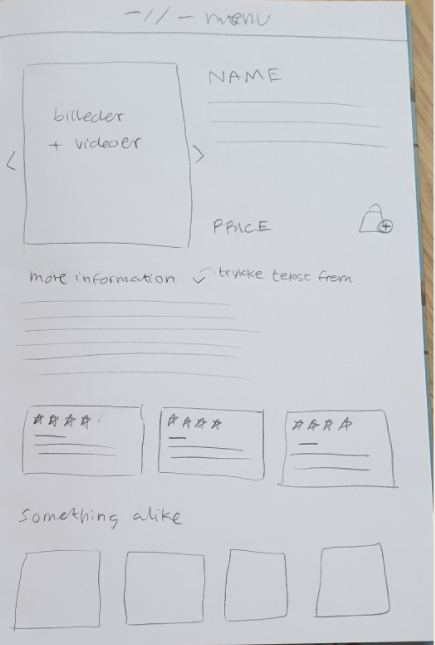 -//- menu
NAME
billeder
+ videoer
PRICE
more information trykke tekst frem
Something alike